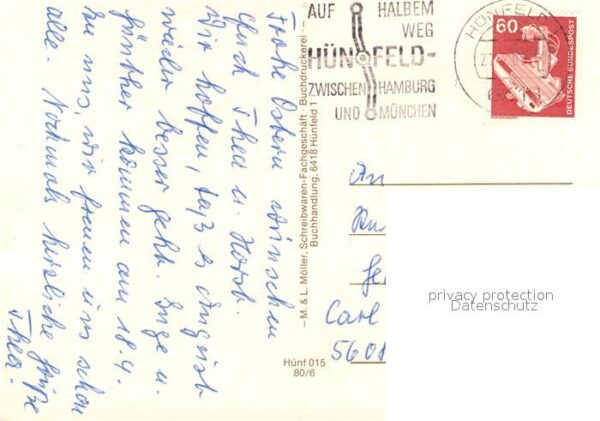 Frohe Ostern wünschen
Euch Thea u. Horst.
Wir hoffen, daß es August
wieder besser geht. Inge u.
Günther kommen am 18.4.
zu uns, wir freuen uns schon
alle. Nochmals herzliche Grüße
Thea.
— M. & L. Möller, Schreibwaren-Fachgeschäft · Buchdruckerei —
Buchhandlung, 6418 Hünfeld 1
Hünf 015
80/6
AUF HALBEM
WEG
HÜNFELD-
ZWISCHEN HAMBURG
UND MÜNCHEN
HÜNFELD
60
DEUTSCHE BUNDESPOST
An
Carl
5608
privacy protection
Datenschutz